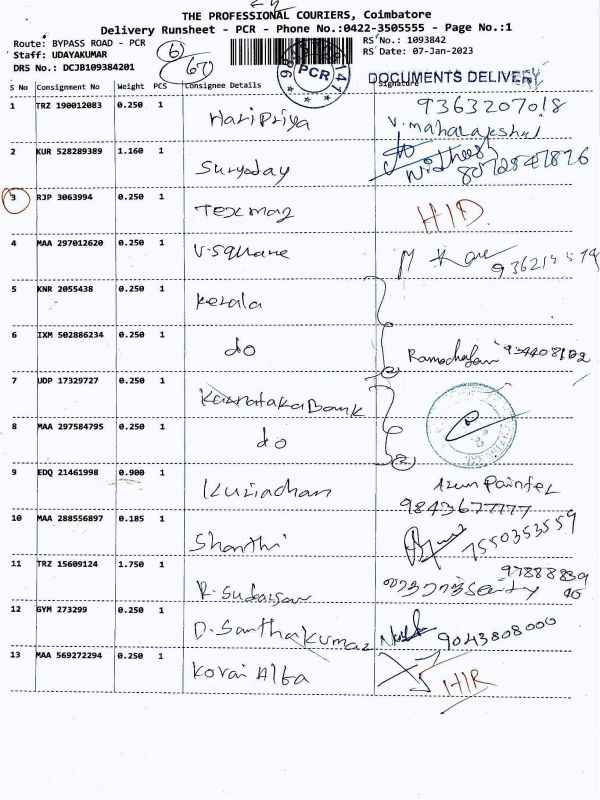 THE PROFESSIONAL COURIERS, Coimbatore
Delivery Runsheet - PCR - Phone No.:0422-3505555 - Page No.:1
Route: BYPASS ROAD - PCR
Staff: UDAYAKUMAR
DRS No.: DCJB109384201
RS No.: 1093842
RS Date: 07-Jan-2023
6
PCR
147
DOCUMENTS DELIVERY
S No Consignment No Weight PCS Consignee Details Signature
1 TRZ 190012083 0.250 1 Haripriya 9363207018
V. mahalakshmi
2 KUR 528289389 1.160 1 Suryoday 8072847876
3 RJP 3063994 0.250 1 Texmaz HID
4 MAA 297012620 0.250 1 V-square
5 KNR 2055438 0.250 1 Kerala
6 IXM 502886234 0.250 1 do
7 UDP 17329727 0.250 1 Karnataka Bank
8 MAA 297584795 0.250 1 do
9 EDQ 21461998 0.900 1 Kuriachan Arun Painter
9843677777
10 MAA 288556897 0.185 1 Shanthi 7550353559
11 TRZ 15609124 1.750 1 R. Sudarsan
12 GYM 273299 0.250 1 D. Santhakumar 9043808000
13 MAA 569272294 0.250 1 Kovai Alfa HIR